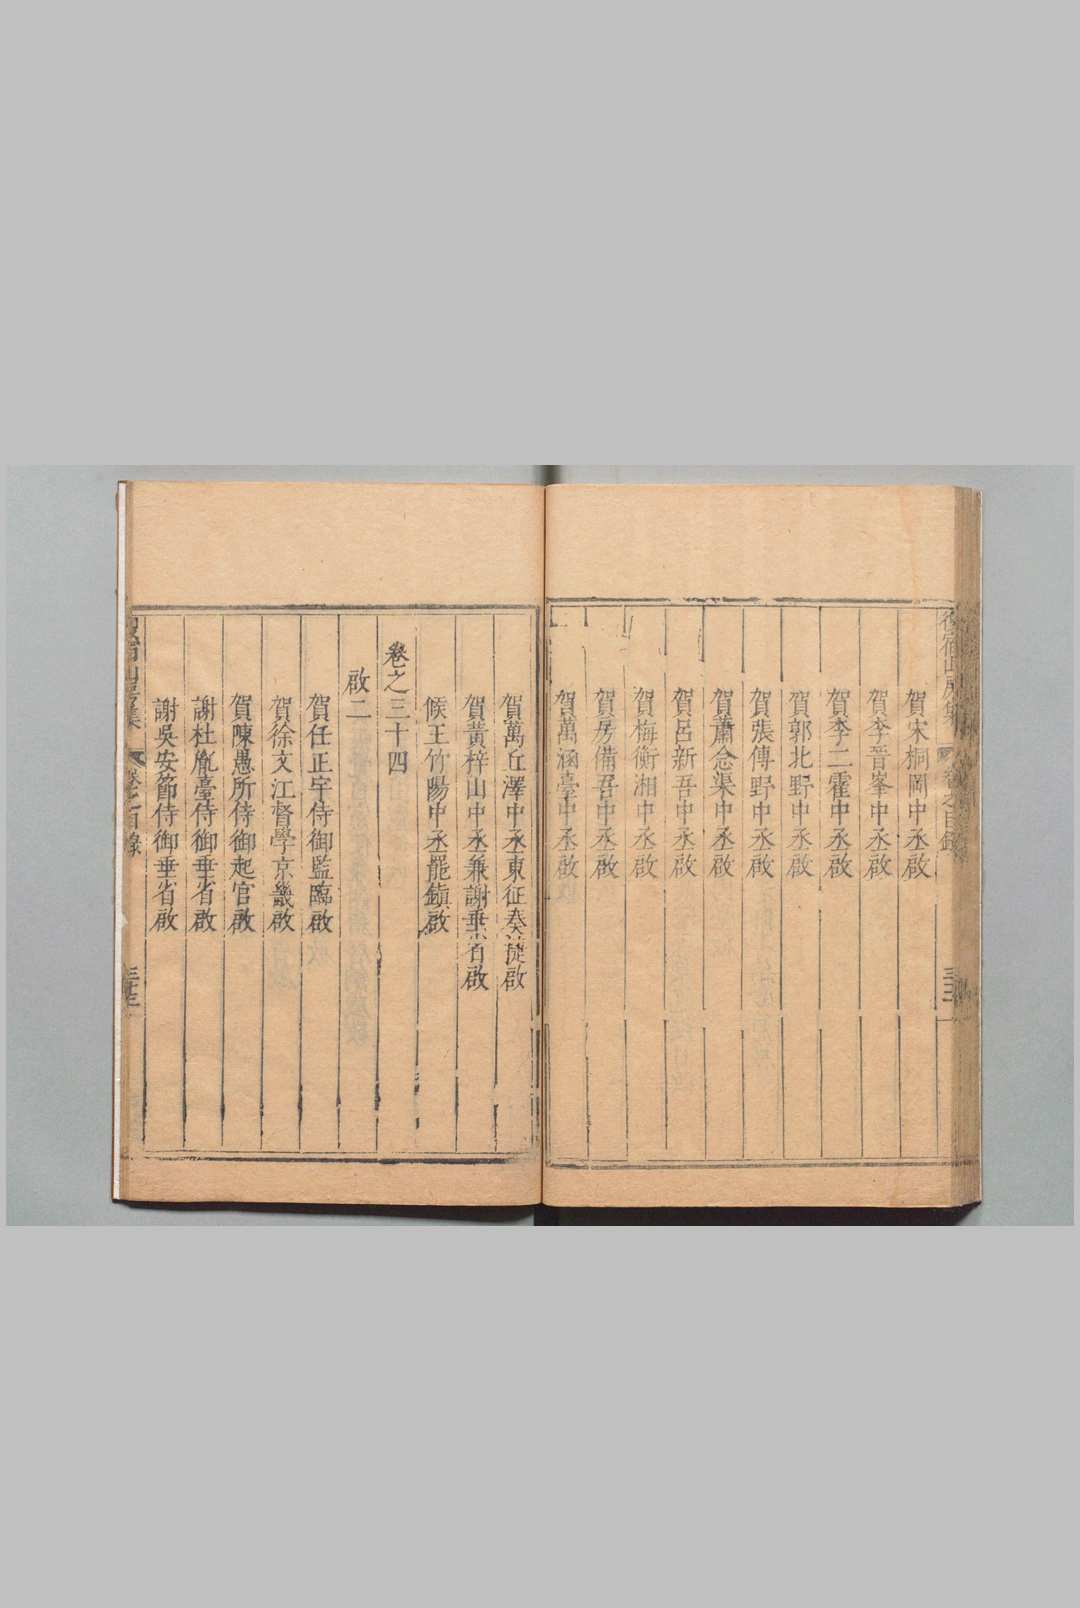 賀宋桐岡中丞啟
賀李晉峯中丞啟
賀李二霍中丞啟
賀郭北野中丞啟
賀張傳野中丞啟
賀蕭念渠中丞啟
賀呂新吾中丞啟
賀梅衡湘中丞啟
賀房備吾中丞啟
賀萬涵臺中丞啟
賀萬丘澤中丞東征奏㨗啟
賀黃梓山中丞兼謝垂省啟
候王竹陽中丞罷鎮啟
卷之三十四
啟二
賀任正宇侍御監臨啟
賀徐文江督學京畿啟
賀陳愚所侍御起官啟
謝杜胤臺侍御垂省啟
謝吳安節侍御垂省啟